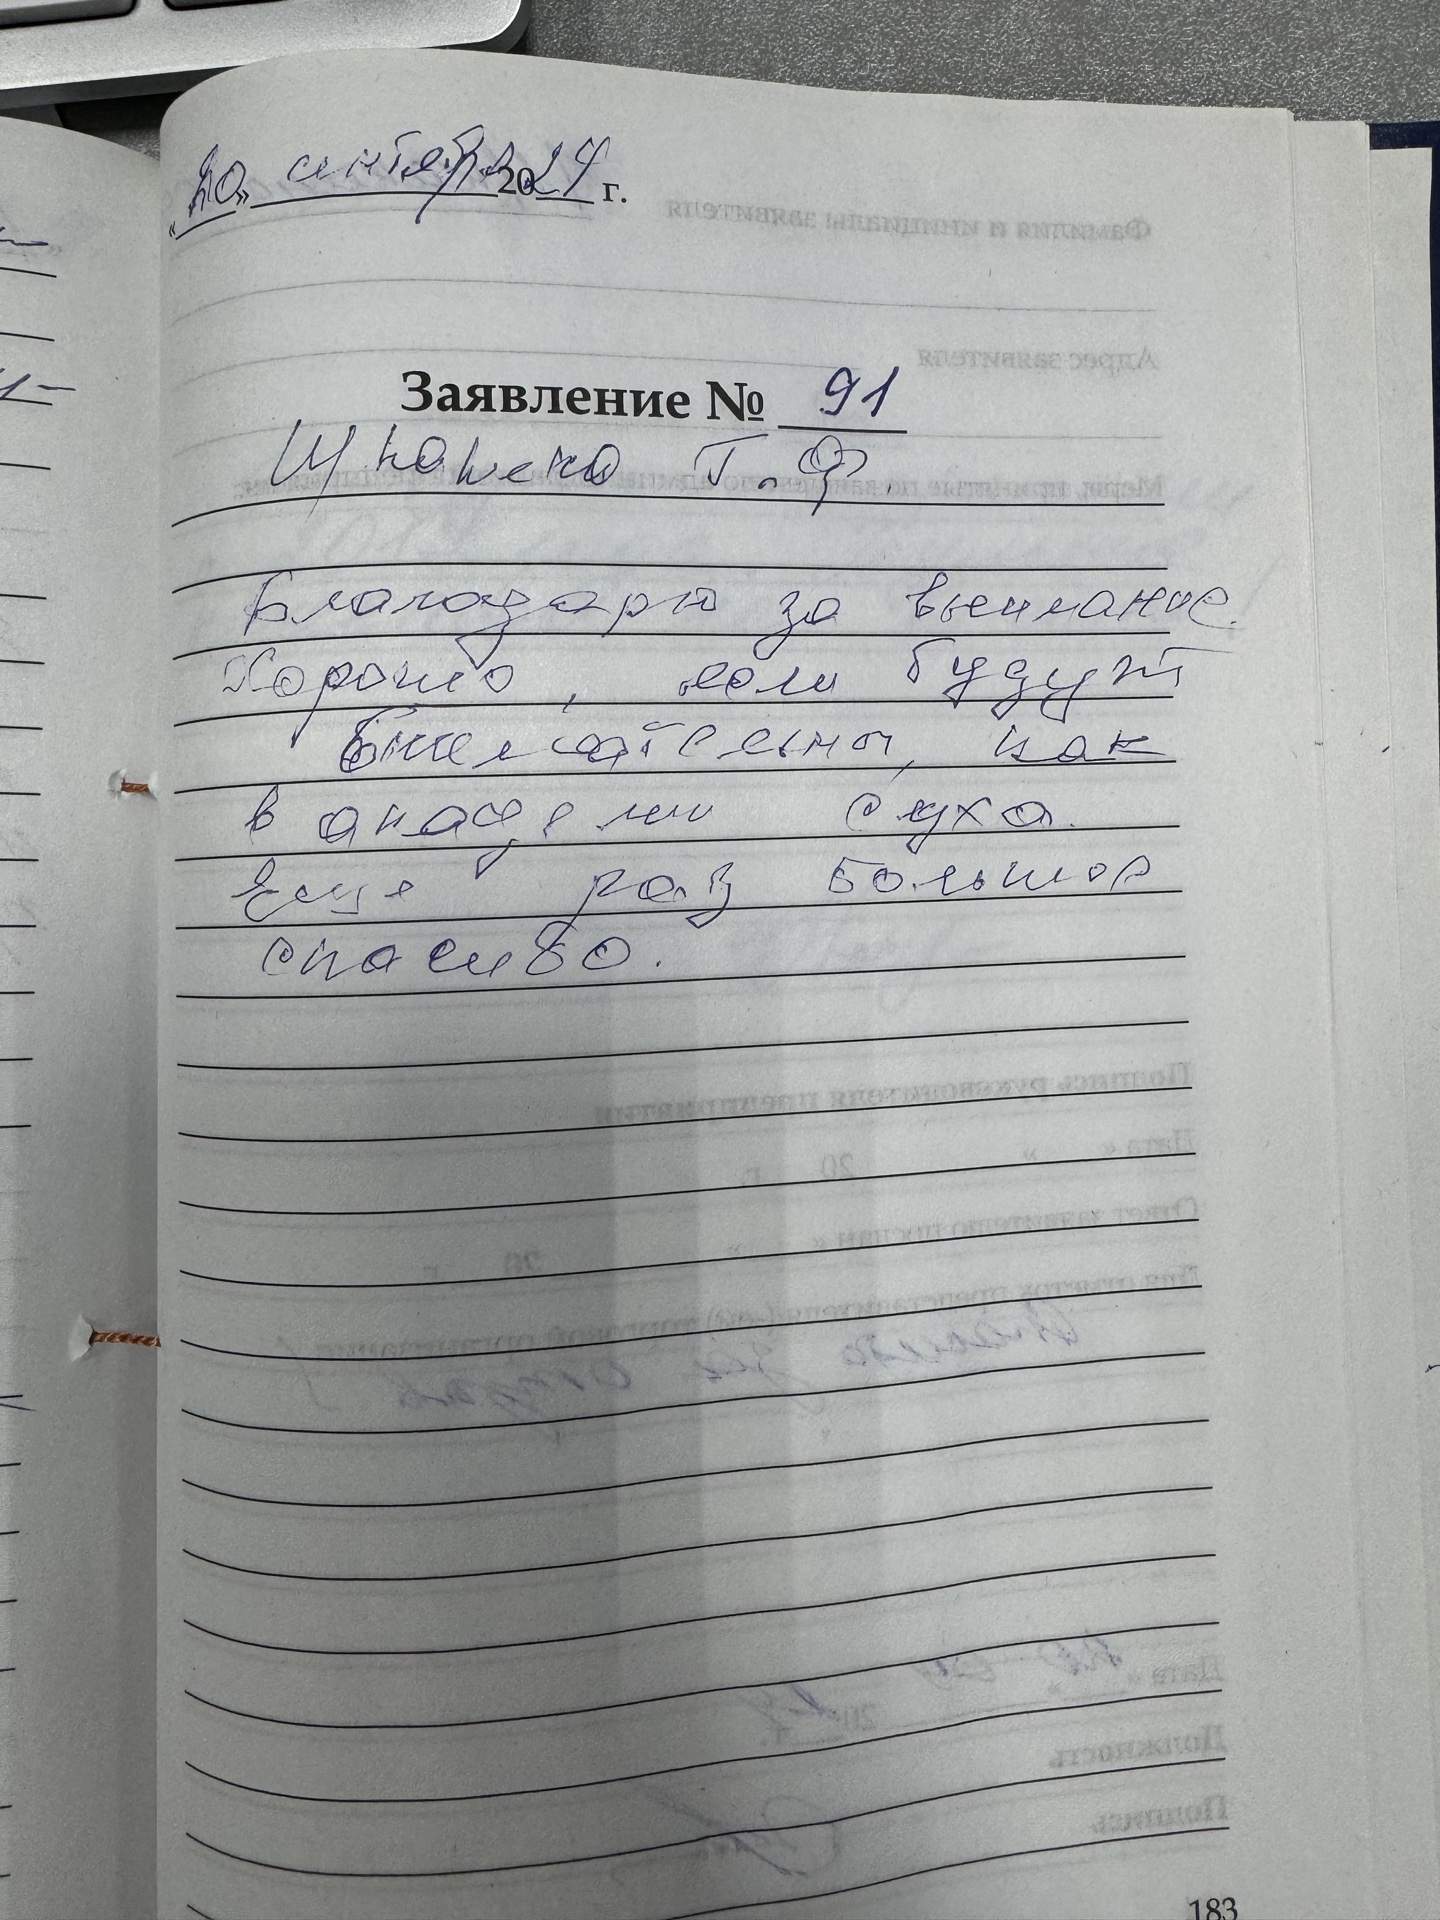 «20» сентября 2024 г.
Заявление № 91
Т. Ф.
Благодарю за внимание.
Хорошо, если будут
внимательны, как
в академии слуха.
Еще раз большое
спасибо.
183